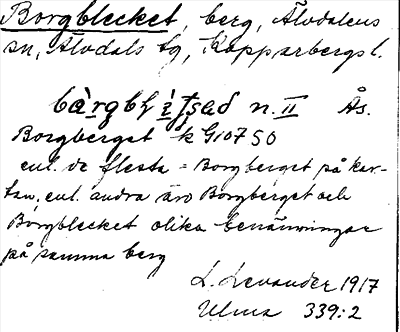 Borgblecket, berg, Älvdalens
sn, Älvdals tg, Kopparbergs l.
n. II Ås.
Borgberget k G107 SO
enl. de flesta = Borgberget på kar-
tan; enl. andra äro Borgberget och
Borgblecket olika benämningar
på samma berg
L. Levander 1917
Ulma 339:2